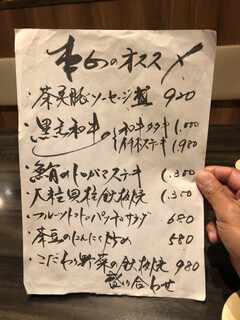 本日のオススメ
・茶美豚ソーセージ盛 920
・黒毛和牛の 和牛タタキ 1,000
ステーキ 1,980
・鮪のトロガマステーキ 1,300
・大粒貝柱鉄板焼 1,300
・フルーツトマトのパリパリサラダ 680
・茶豆のにんにく炒め 580
・こだわり野菜の鉄板焼 980
盛り合わせ